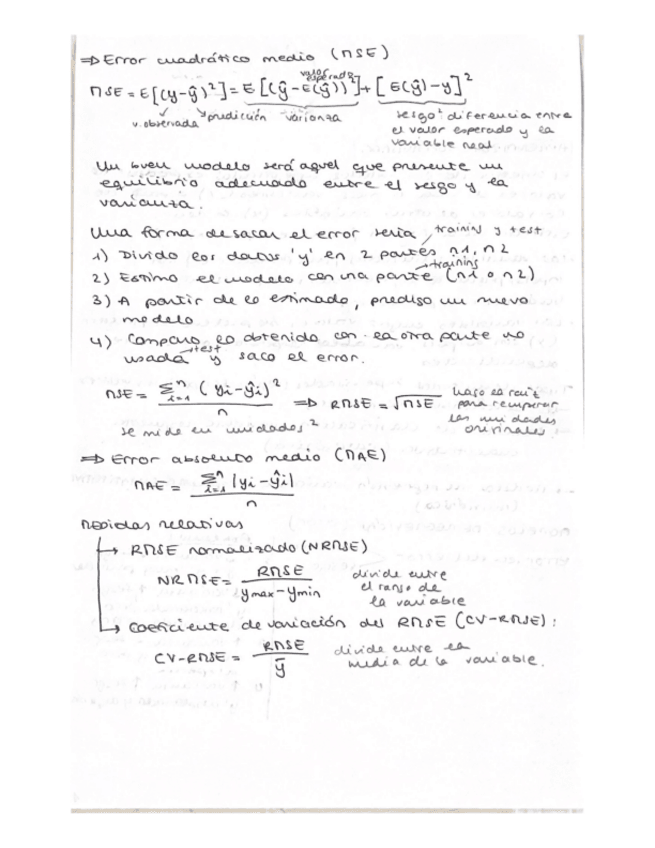 ⇒ Error cuadrático medio (MSE)
valor esperado
MSE = E[(y-ŷ)²] = E[(ŷ-E(ŷ))²] + [E(ŷ)-y]²
v. observada predicción varianza sesgo²: diferencia entre
el valor esperado y la
variable real
Un buen modelo será aquel que presente un
equilibrio adecuado entre el sesgo y la
varianza.
Una forma de sacar el error sería training y test
1) Divido los datos 'y' en 2 partes n1, n2
training
2) Estimo el modelo con una parte (n1 o n2)
3) A partir de lo estimado, prediso un nuevo
modelo
4) Comparo lo obtenido con la otra parte no
usada test y saco el error.
MSE = Σⁿᵢ₌₁ (yi-ŷi)² / n ⇒ RMSE = √MSE
hago la raíz
para recuperar
las unidades
originales
se mide en unidades²
⇒ Error absoluto medio (MAE)
MAE = Σⁿᵢ₌₁ |yi-ŷi| / n
Medidas relativas
→ RMSE normalizado (NRMSE)
NRMSE = RMSE / ymax-ymin
divide entre
el rango de
la variable
→ Coeficiente de variación del RMSE (CV-RMSE):
CV-RMSE = RMSE / ȳ
divide entre la
media de la variable.